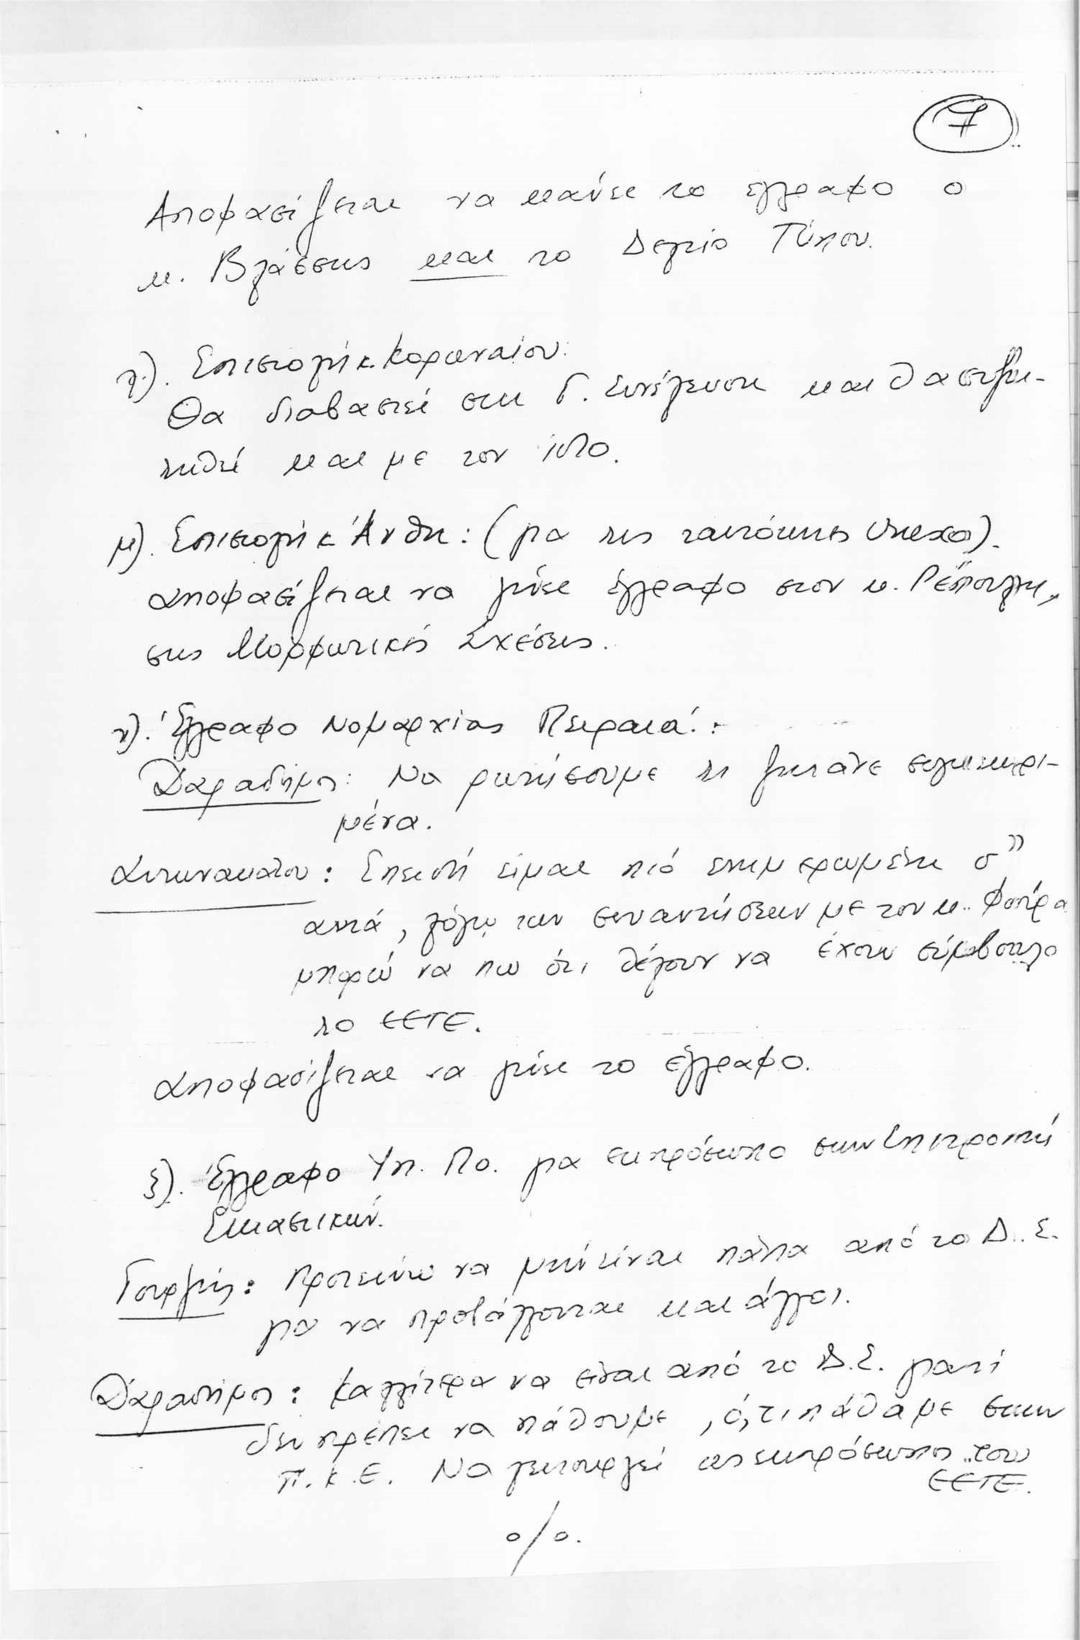 7
Αποφασίζεται να κάνει το έγγραφο ο
κ. Βλάσσης και το Δελτίο Τύπου.
λ). Επιστολή κ. Κορωναίου:
Θα διαβαστεί στη Γ. Συνέλευση και θα συζη-
τηθεί και με τον ίδιο.
μ). Επιστολή κ. Άνθη: (για τις ταυτότητες Unesco).
αποφασίζεται να γίνει έγγραφο στον κ. Ρέπουλη,
στις Μορφωτικές Σχέσεις.
ν). Έγγραφο Νομαρχίας Πειραιά:
Παραδήμα: Να ρωτήσουμε τι ζητάνε συγκεκρι-
μένα.
: Επειδή είμαι πιό ενημερωμένη σ'
αυτά, λόγω των συναντήσεων με τον κ.
μπορώ να πω ότι θέλουν να έχουν σύμβουλο
το ΕΕΤΕ.
αποφασίζεται να γίνει το έγγραφο.
ξ). Έγγραφο Υπ. Πο. για εκπρόσωπο στην Επιτροπή
Εικαστικών.
Γουρζής: Προτείνω να μην είναι πάλι από το Δ.Σ.
για να προβάλλονται και άλλοι.
: Καλλίτερα να είναι από το Δ.Σ. γιατί
δεν πρέπει να πάθουμε, ό,τι πάθαμε στην
Π.Κ.Ε. Να λειτουργεί ως εκπρόσωπος του
ΕΕΤΕ.
ο/ο.